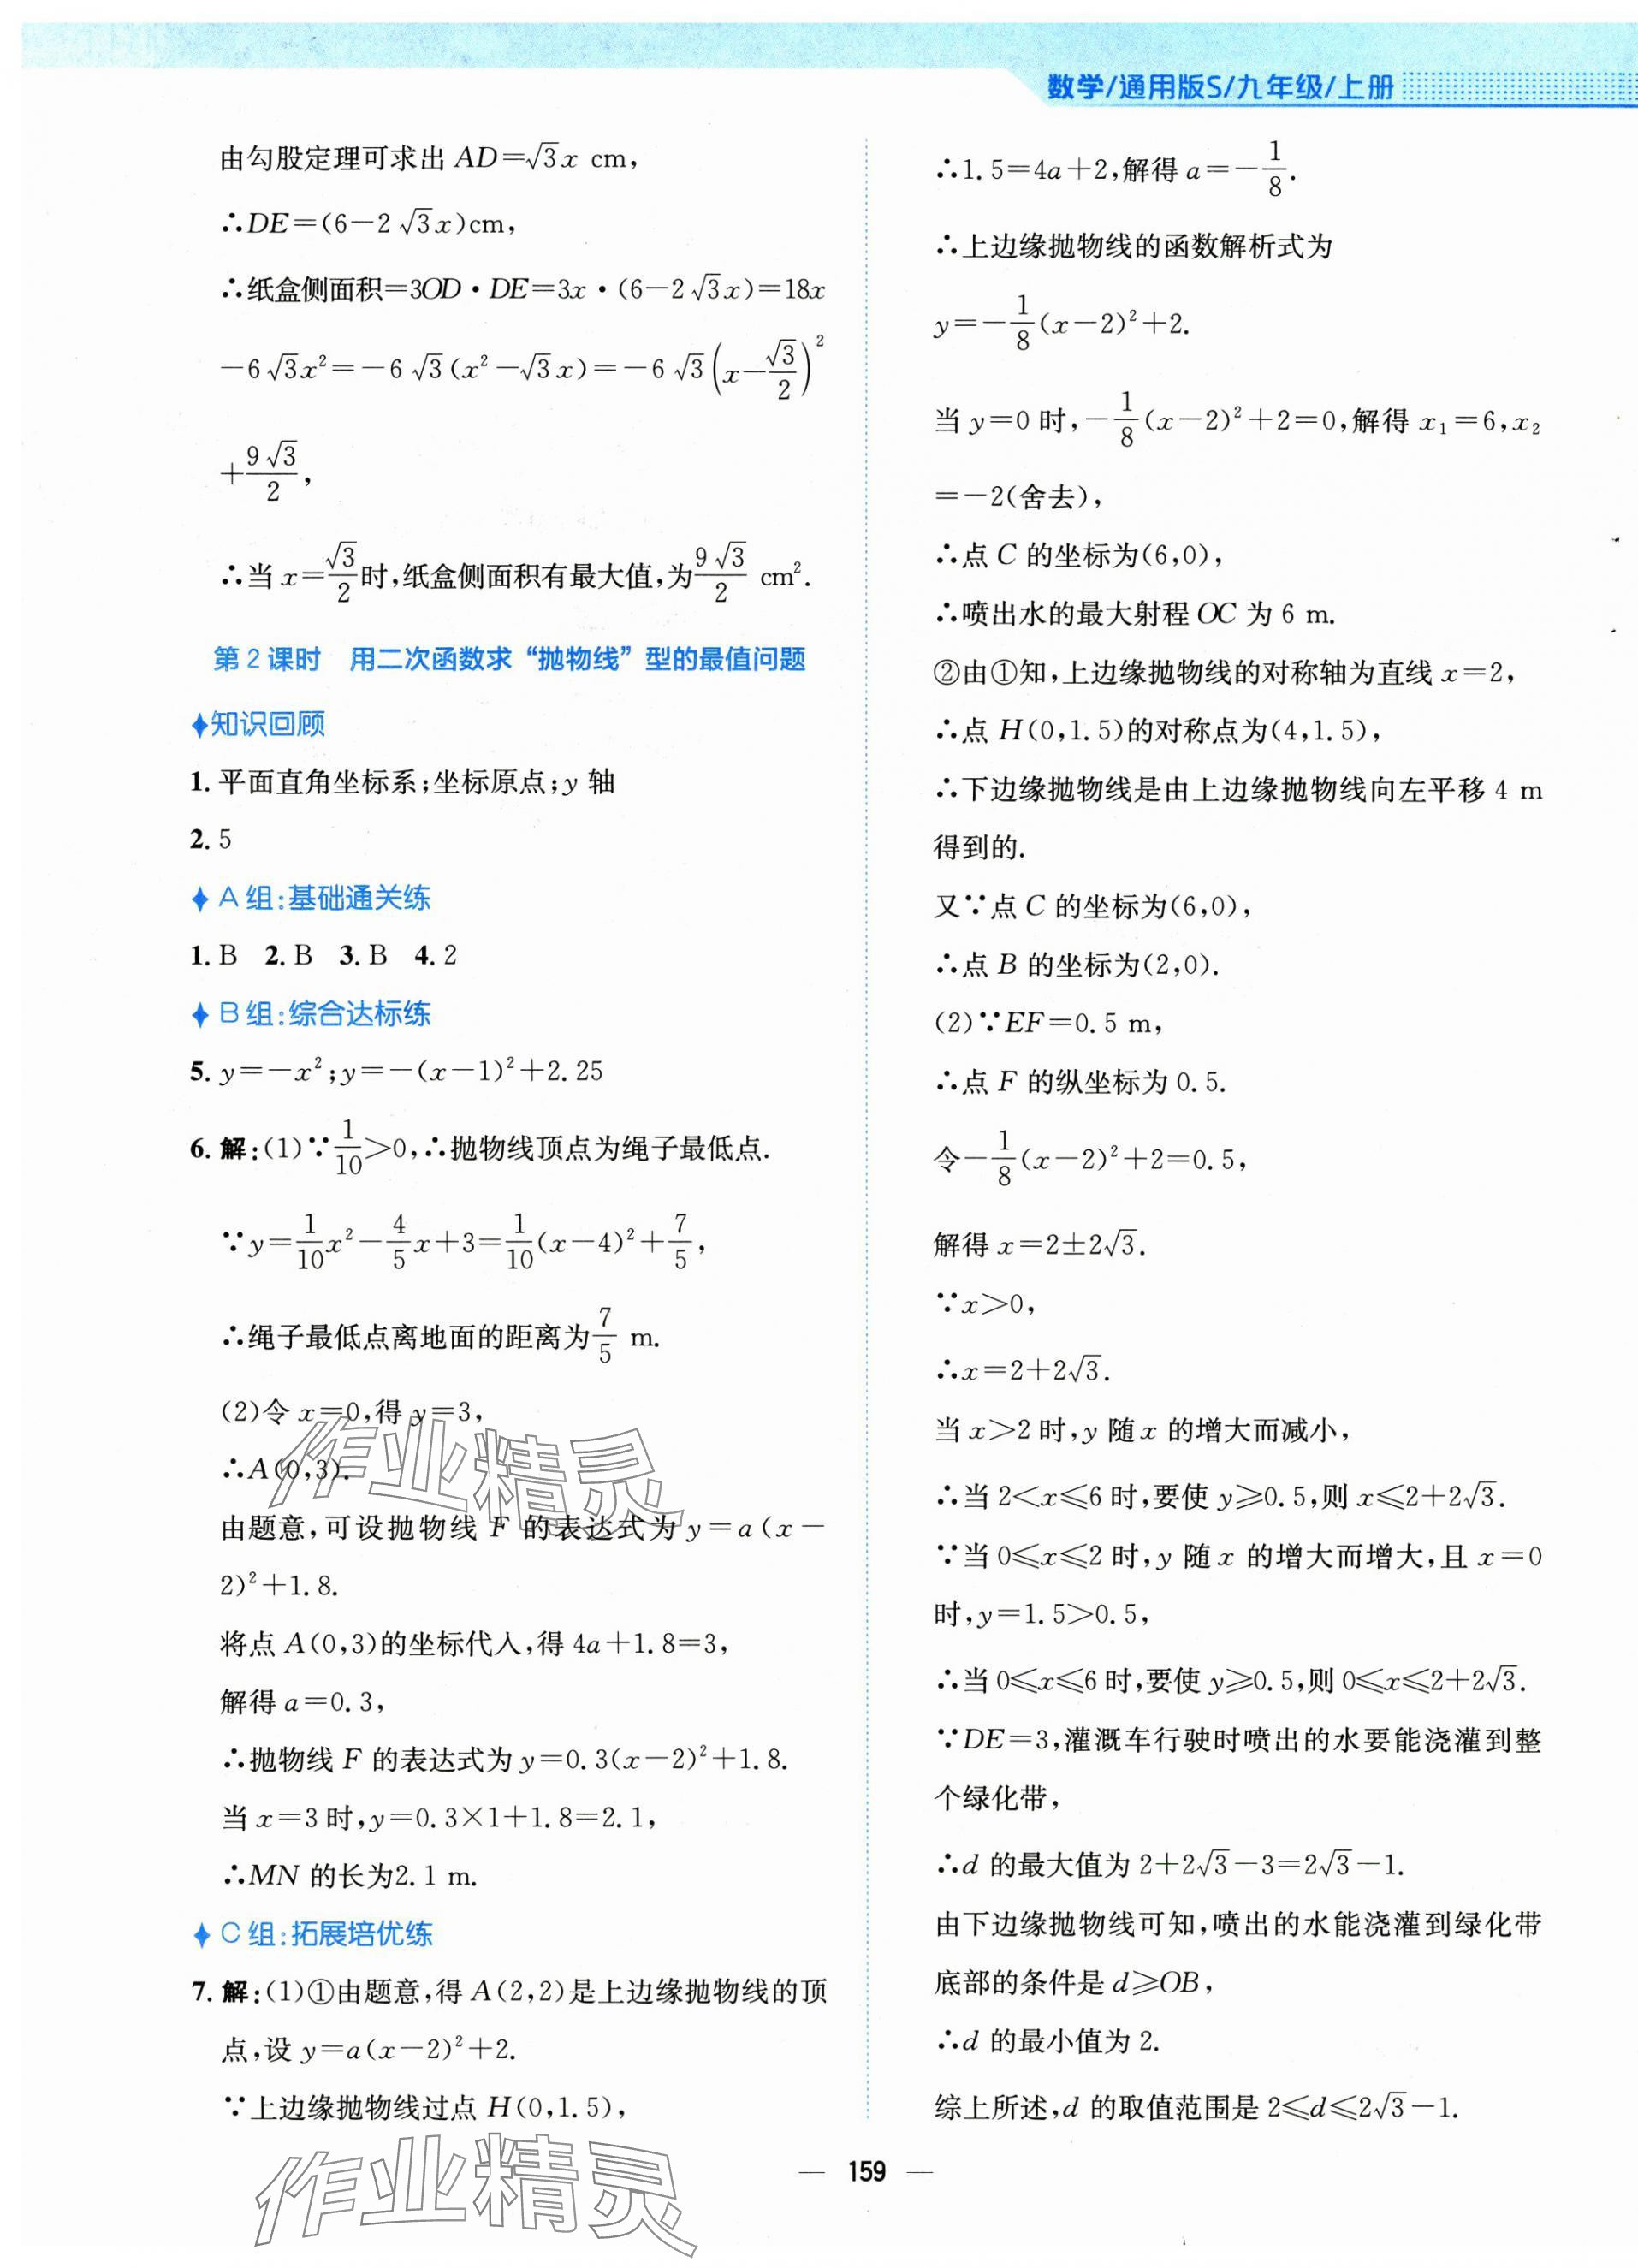 数学/通用版S/九年级/上册
由勾股定理可求出 AD=√3x cm,
∴DE=(6-2√3x)cm,
∴纸盒侧面积=3OD·DE=3x·(6-2√3x)=18x
-6√3x²=-6√3(x²-√3x)=-6√3(x-√3/2)²
+9√3/2,
∴当 x=√3/2时,纸盒侧面积有最大值,为9√3/2 cm².
第2课时 用二次函数求“抛物线”型的最值问题
知识回顾
1.平面直角坐标系;坐标原点;y 轴
2.5
A组:基础通关练
1.B 2.B 3.B 4.2
B组:综合达标练
5.y=-x²;y=-(x-1)²+2.25
6.解:(1)∵1/10>0,∴抛物线顶点为绳子最低点.
∵y=1/10x²-4/5x+3=1/10(x-4)²+7/5,
∴绳子最低点离地面的距离为7/5 m.
(2)令 x=0,得 y=3,
∴A(0,3).
由题意,可设抛物线 F 的表达式为 y=a(x-
2)²+1.8.
将点 A(0,3)的坐标代入,得 4a+1.8=3,
解得 a=0.3,
∴抛物线 F 的表达式为 y=0.3(x-2)²+1.8.
当 x=3 时,y=0.3×1+1.8=2.1,
∴MN 的长为2.1 m.
C组:拓展培优练
7.解:(1)①由题意,得 A(2,2)是上边缘抛物线的顶
点,设 y=a(x-2)²+2.
∵上边缘抛物线过点 H(0,1.5),
∴1.5=4a+2,解得 a=-1/8.
∴上边缘抛物线的函数解析式为
y=-1/8(x-2)²+2.
当 y=0 时,-1/8(x-2)²+2=0,解得 x₁=6,x₂
=-2(舍去),
∴点 C 的坐标为(6,0),
∴喷出水的最大射程 OC 为 6 m.
②由①知,上边缘抛物线的对称轴为直线 x=2,
∴点 H(0,1.5)的对称点为(4,1.5),
∴下边缘抛物线是由上边缘抛物线向左平移 4 m
得到的.
又∵点 C 的坐标为(6,0),
∴点 B 的坐标为(2,0).
(2)∵EF=0.5 m,
∴点 F 的纵坐标为 0.5.
令-1/8(x-2)²+2=0.5,
解得 x=2±2√3.
∵x>0,
∴x=2+2√3.
当 x>2 时,y 随 x 的增大而减小,
∴当 2<x≤6 时,要使 y≥0.5,则 x≤2+2√3.
∵当 0≤x≤2 时,y 随 x 的增大而增大,且 x=0
时,y=1.5>0.5,
∴当 0≤x≤6 时,要使 y≥0.5,则 0≤x≤2+2√3.
∵DE=3,灌溉车行驶时喷出的水要能浇灌到整
个绿化带,
∴d 的最大值为 2+2√3-3=2√3-1.
由下边缘抛物线可知,喷出的水能浇灌到绿化带
底部的条件是 d≥OB,
∴d 的最小值为 2.
综上所述,d 的取值范围是 2≤d≤2√3-1.
作业精灵
作业精灵
— 159 —